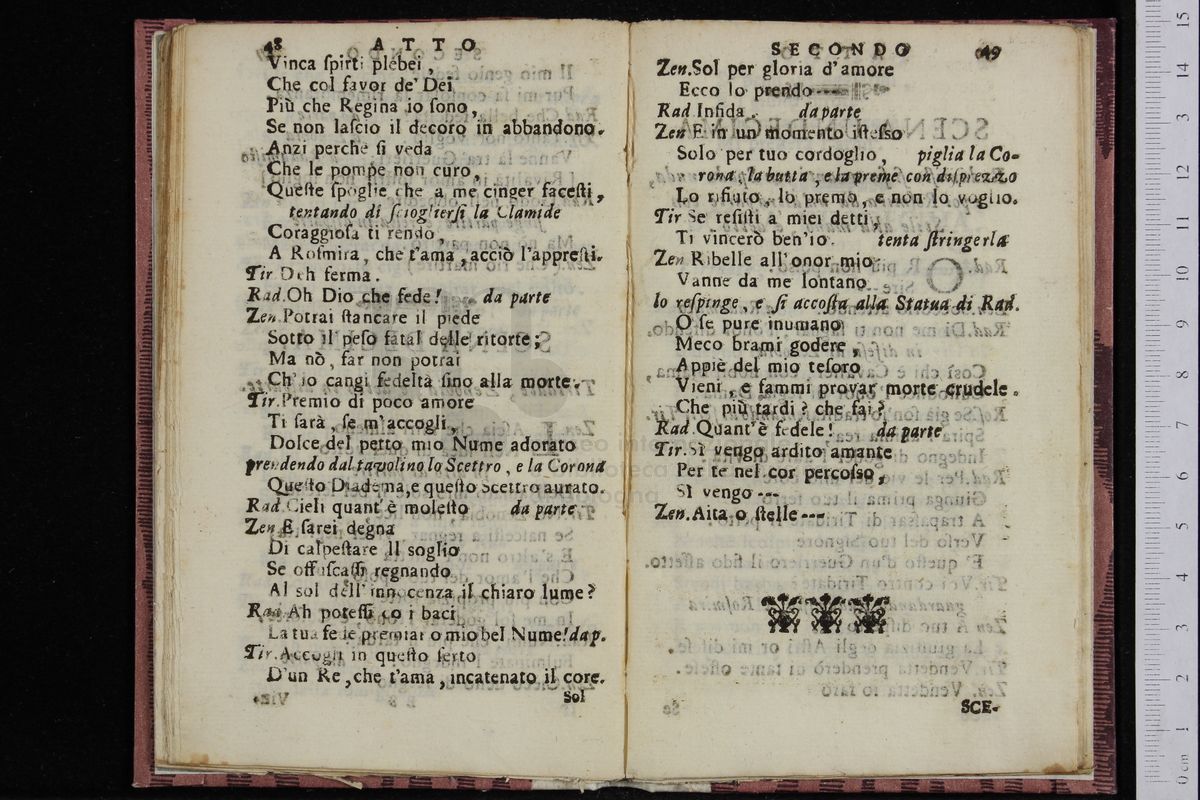 48 ATTO
Vinca ſpirti plebei,
Che col favor de' Dei
Più che Regina io ſono,
Se non laſcio il decoro in abbandono.
Anzi perche ſi veda
Che le pompe non curo,
Queſte ſpoglie che a me cinger faceſti,
tentando di ſcioglierſi la Clamide
Coraggioſa ti rendo,
A Roſmira, che t'ama, acciò l'appreſti.
Tir. Deh ferma.
Rad. Oh Dio che fede! da parte
Zen. Potrai ſtancare il piede
Sotto il peſo fatal delle ritorte;
Ma nò, far non potrai
Ch' io cangi fedeltà ſino alla morte.
Tir. Premio di poco amore
Ti ſarà, ſe m'accogli,
Dolce del petto mio Nume adorato
prendendo dal tavolino lo Scettro, e la Corona
Queſto Diadema, e queſto Scettro aurato.
Rad. Cieli quant' è moleſto da parte
Zen. E ſarei degna
Di calpeſtare il ſoglio
Se offuſcaſſi regnando
Al sol dell' innocenza il chiaro lume?
Rad. Ah poteſſi co i baci
La tua fede premiar o mio bel Nume! da p.
Tir. Accogli in queſto ſerto
D'un Re, che t'ama, incatenato il core.
Sol
SECONDO 49
Zen. Sol per gloria d'amore
Ecco lo prendo ---
Rad Infida. da parte
Zen E in un momento iſteſſo
Solo per tuo cordoglio, piglia la Co-
rona, la butta, e la preme con diſprezzo
Lo rifiuto, lo premo, e non lo voglio.
Tir Se reſiſti a miei detti,
Ti vincerò ben'io. tenta ſtringerla
Zen Ribelle all'onor mio
Vanne da me lontano
lo reſpinge, e ſi accoſta alla Statua di Rad.
O ſe pure inumano
Meco brami godere,
Appiè del mio teſoro
Vieni, e fammi provar morte crudele.
Che più tardi? che fai?
Rad Quant'è fedele! da parte
Tir. Sì vengo ardito amante
Per te nel cor percoſſo,
Sì vengo ---
Zen. Aita o ſtelle ---
SCE-